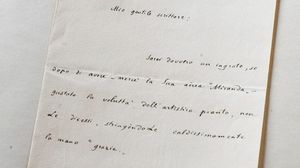 Mio gentile scrittore:
Sarei davvero un ingrato, se
dopo di avere – mercè la Sua aurea "Miranda" –
gustato la voluttà dell'artistico pianto, non
Le dicessi, stringendoLe caldissimamente
la mano "grazie"